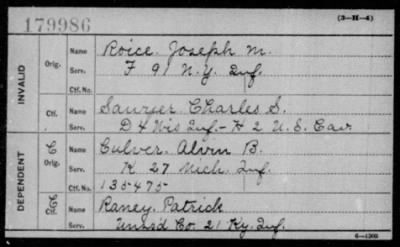 179986
(3-H-4)
INVALID
Orig.
Name Roice, Joseph M.
Serv. F 91 N.Y. Inf.
Ctf. No.
Ctf.
Name Saurier Charles S.
Serv. D 4 Wis Inf. - H 2 U.S. Cav
DEPENDENT
C
Orig.
Name Culver, Alvin B.
Serv. K 27 Mich. Inf.
Ctf. No. 135475
Ctf.
Name Raney, Patrick
Serv. Unasd Co. 21 Ky. Inf.